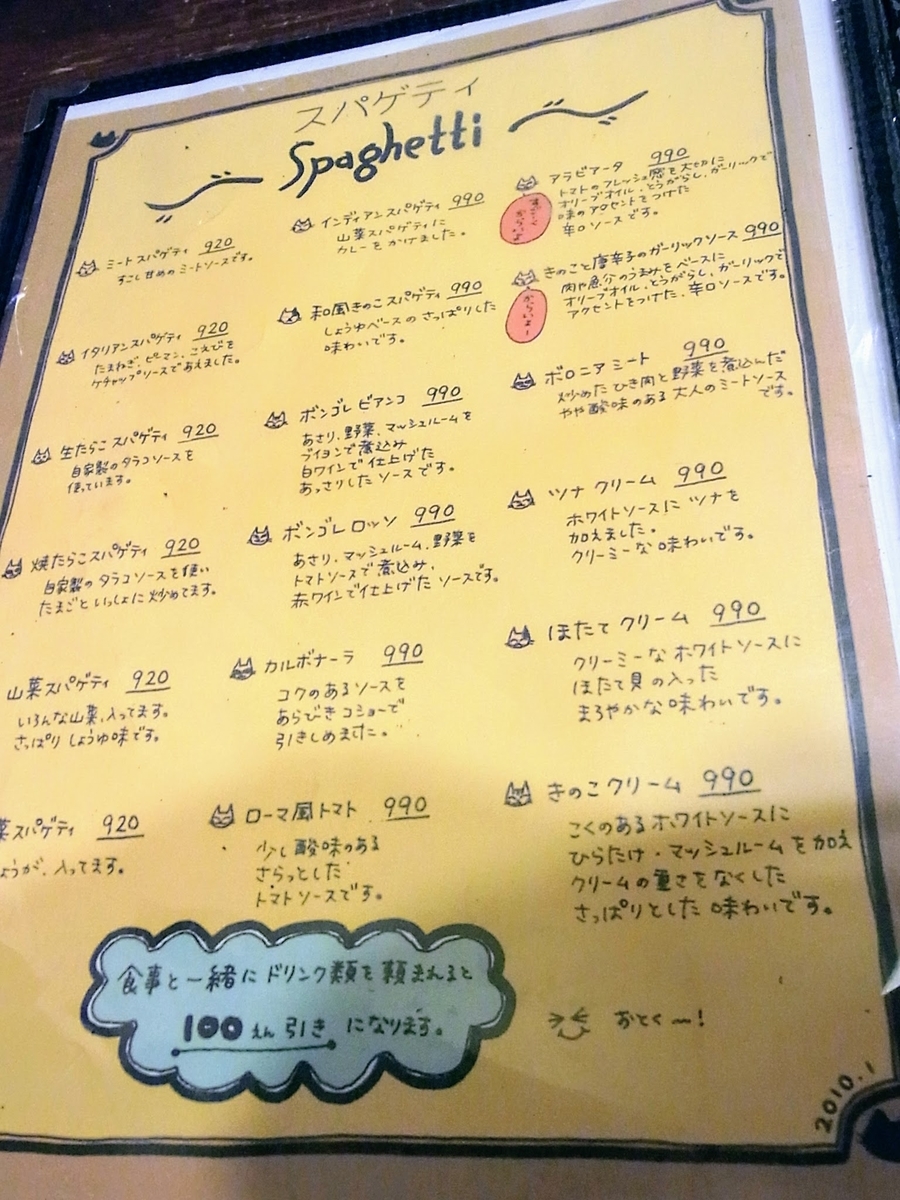 スパゲティ
Spaghetti
ミートスパゲティ 920
すこし甘めのミートソースです。
イタリアンスパゲティ 920
たまねぎ、ピーマン、こえびを
ケチャップソースであえました。
生たらこスパゲティ 920
自家製のタラコソースを
使っています。
焼たらこスパゲティ 920
自家製のタラコソースを使い
たまごといっしょに炒めてます。
山菜スパゲティ 920
いろんな山菜、入ってます。
さっぱりしょうゆ味です。
菜スパゲティ 920
ょうが、入ってます。
インディアンスパゲティ 990
山菜スパゲティに
カレーをかけました。
和風きのこスパゲティ 990
しょうゆベースのさっぱりした
味わいです。
ボンゴレビアンコ 990
あさり、野菜、マッシュルームを
ブイヨンで煮込み
白ワインで仕上げた
あっさりしたソースです。
ボンゴレロッソ 990
あさり、マッシュルーム、野菜を
トマトソースで煮込み、
赤ワインで仕上げたソースです。
カルボナーラ 990
コクのあるソースを
あらびきコショーで
引きしめました。
ローマ風トマト 990
少し酸味のある
さらっとした
トマトソースです。
アラビアータ 990
トマトのフレッシュ感を大切に
オリーブオイル、とうがらし、ガーリックで
味のアクセントをつけた
辛口ソースです。
すごーく
からいよ
きのこと唐辛子のガーリックソース 990
肉や魚介のうまみをベースに
オリーブオイル、とうがらし、ガーリックで
アクセントをつけた、辛口ソースです。
からいよー
ボロニアミート 990
炒めたひき肉と野菜を煮込んだ
やや酸味のある大人のミートソース
です。
ツナクリーム 990
ホワイトソースにツナを
加えました。
クリーミーな味わいです。
ほたてクリーム 990
クリーミーなホワイトソースに
ほたて貝の入った
まろやかな味わいです。
きのこクリーム 990
こくのあるホワイトソースに
ひらたけ・マッシュルームを加え
クリームの重さをなくした
さっぱりとした味わいです。
食事と一緒にドリンク類を頼まれると
100えん引きになります。
おとく〜!
2010.1